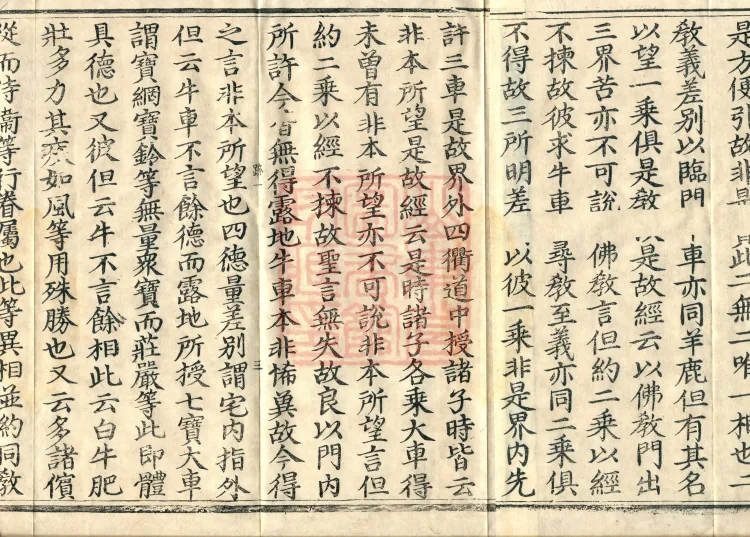 是方便引故非是 此二無二唯一相也二
教義差別以臨門 車亦同羊鹿但有其名
以望一乘俱是教 是故經云以佛教門出
三界苦亦不可說 佛教言但約二乘以經
不揀故彼求牛車 尋教至義亦同二乘俱
不得故三所明差 以彼一乘非是界內先
許三車是故界外四衢道中授諸子時皆云
非本所望是故經云是時諸子各乘大車得
未曾有非本所望亦不可說非本所望言但
約二乘以經不揀故聖言無失故良以門內
所許今皆無得露地牛車本非悕冀故今得
之言非本所望也四德量差別謂宅內指外
但云牛車不言餘德而露地所授七寶大車
謂寶網寶鈴等無量衆寶而莊嚴等此即體
具德也又彼但云牛不言餘相此云白牛肥
壯多力其疾如風等用殊勝也又云多諸儐
從而侍衞等行眷屬也此等異相並約同教
路一
三